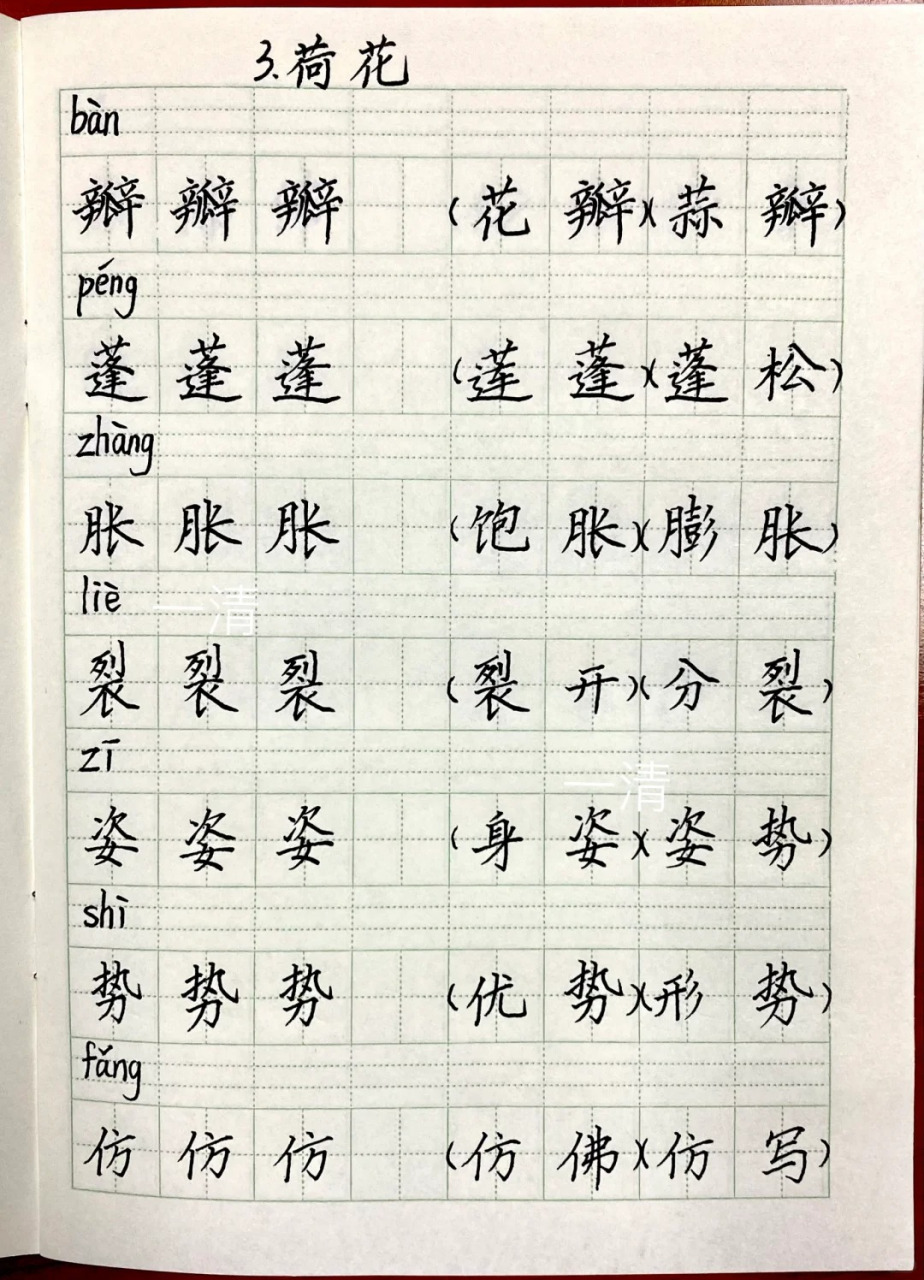 3.荷花
bàn
瓣 瓣 瓣 (花 瓣)(蒜 瓣)
péng
蓬 蓬 蓬 (莲 蓬)(蓬 松)
zhàng
胀 胀 胀 (饱 胀)(膨 胀)
liè
一清
裂 裂 裂 (裂 开)(分 裂)
zī
一清
姿 姿 姿 (身 姿)(姿 势)
shì
势 势 势 (优 势)(形 势)
fǎng
仿 仿 仿 (仿 佛)(仿 写)